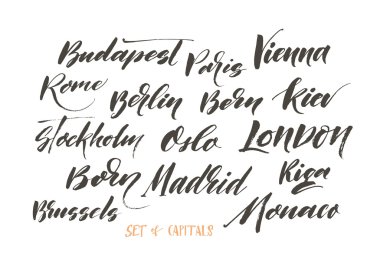 Budapest Paris Vienna
Rome Berlin Bern Kiev
Stockholm Oslo LONDON
Born Madrid Riga
Brussels Monaco
SET of CAPITALS